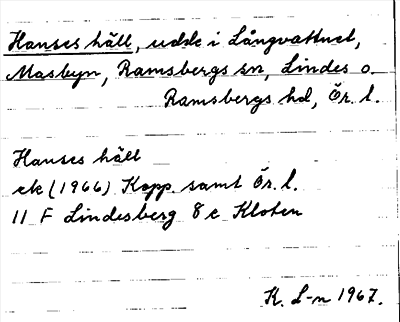 Hanses häll, udde i Långvattnet,
Masbyn, Ramsbergs sn, Lindes o.
Ramsbergs hd, Ör. l.
Hanses häll
ek (1966) Kopp. samt Ör. l.
11 F Lindesberg 8 c Kloten
K. L-n 1967.